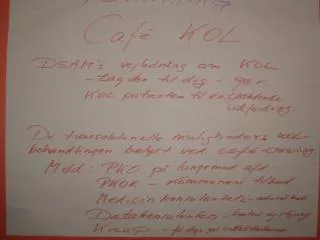 Café KOL
DSAM's vejledning om KOL
- tag den til dig - gør
KOL patienten til en spændende
udfordring
De tværsektorielle muligheders KOL-
behandlingen belyst ved café-crawling
Mød: PKO på lungemed. afd.
PKOK - Kommunens tilbud
Medicinkonsulenten -
Datakonsulenten -
KVUP -